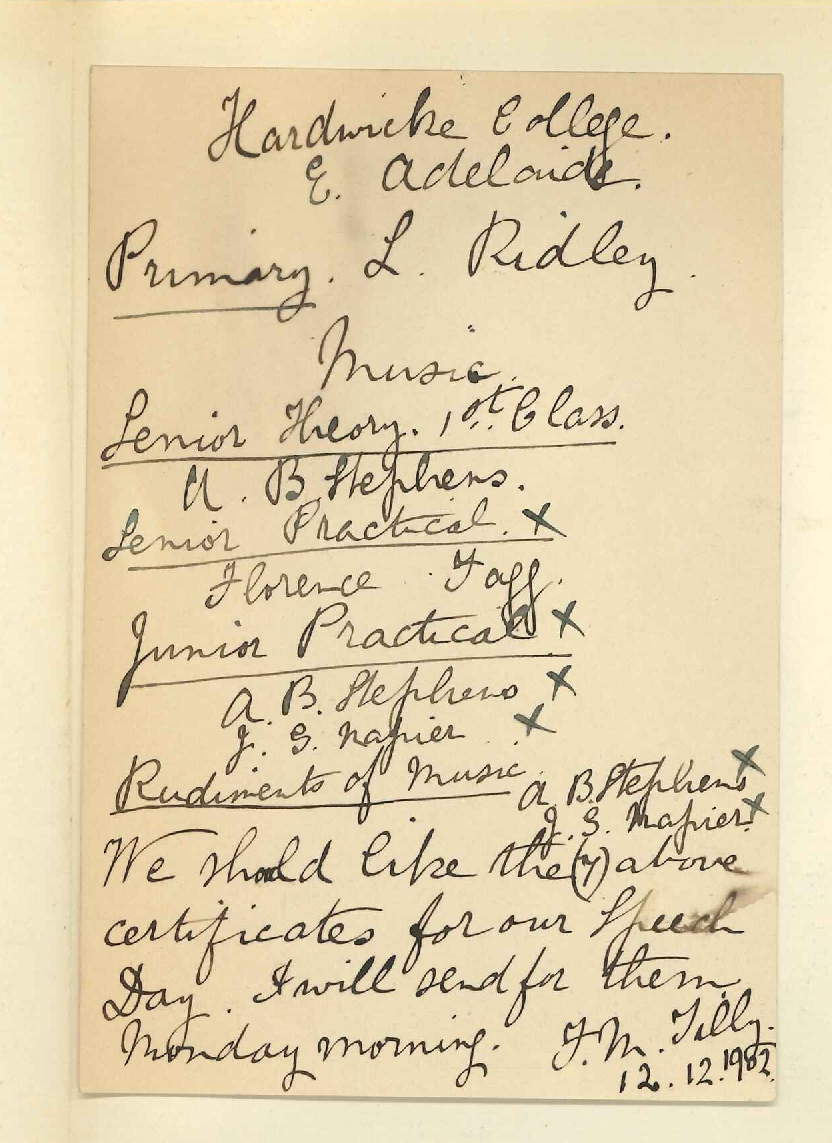 Hardwicke College.
E. Adelaide.
Primary. L. Ridley.
Music.
Senior Theory. 1st. Class.
A. B Stephens.
Senior Practical. X
Florence Taff.
Junior Practical. X
A. B. Stephens X
J. G. Napier X
Rudiments of Music. A B Stephens X
J. G. Napier. X
We should like the (7) above
certificates for our Speech
Day. I will send for them
Monday morning. F. M. Tilly.
12.12.1902